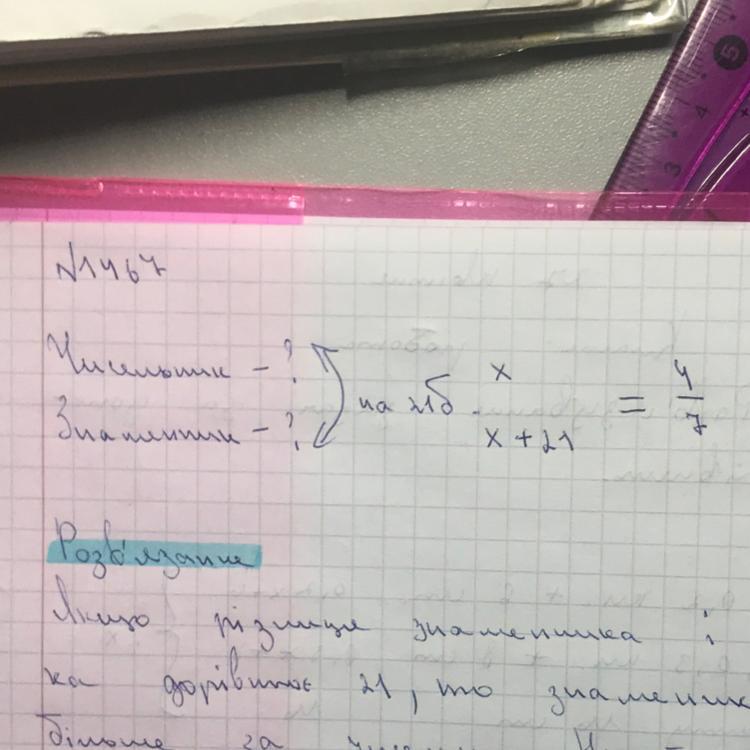 N1467
Чисельник – ?
на 21 б.
x
x + 21
=
4
7
Знаменник – ?
Розв'язання
Якщо різниця знаменника і
ка дорівнює 21, то знаменник
більше за
5
4
3